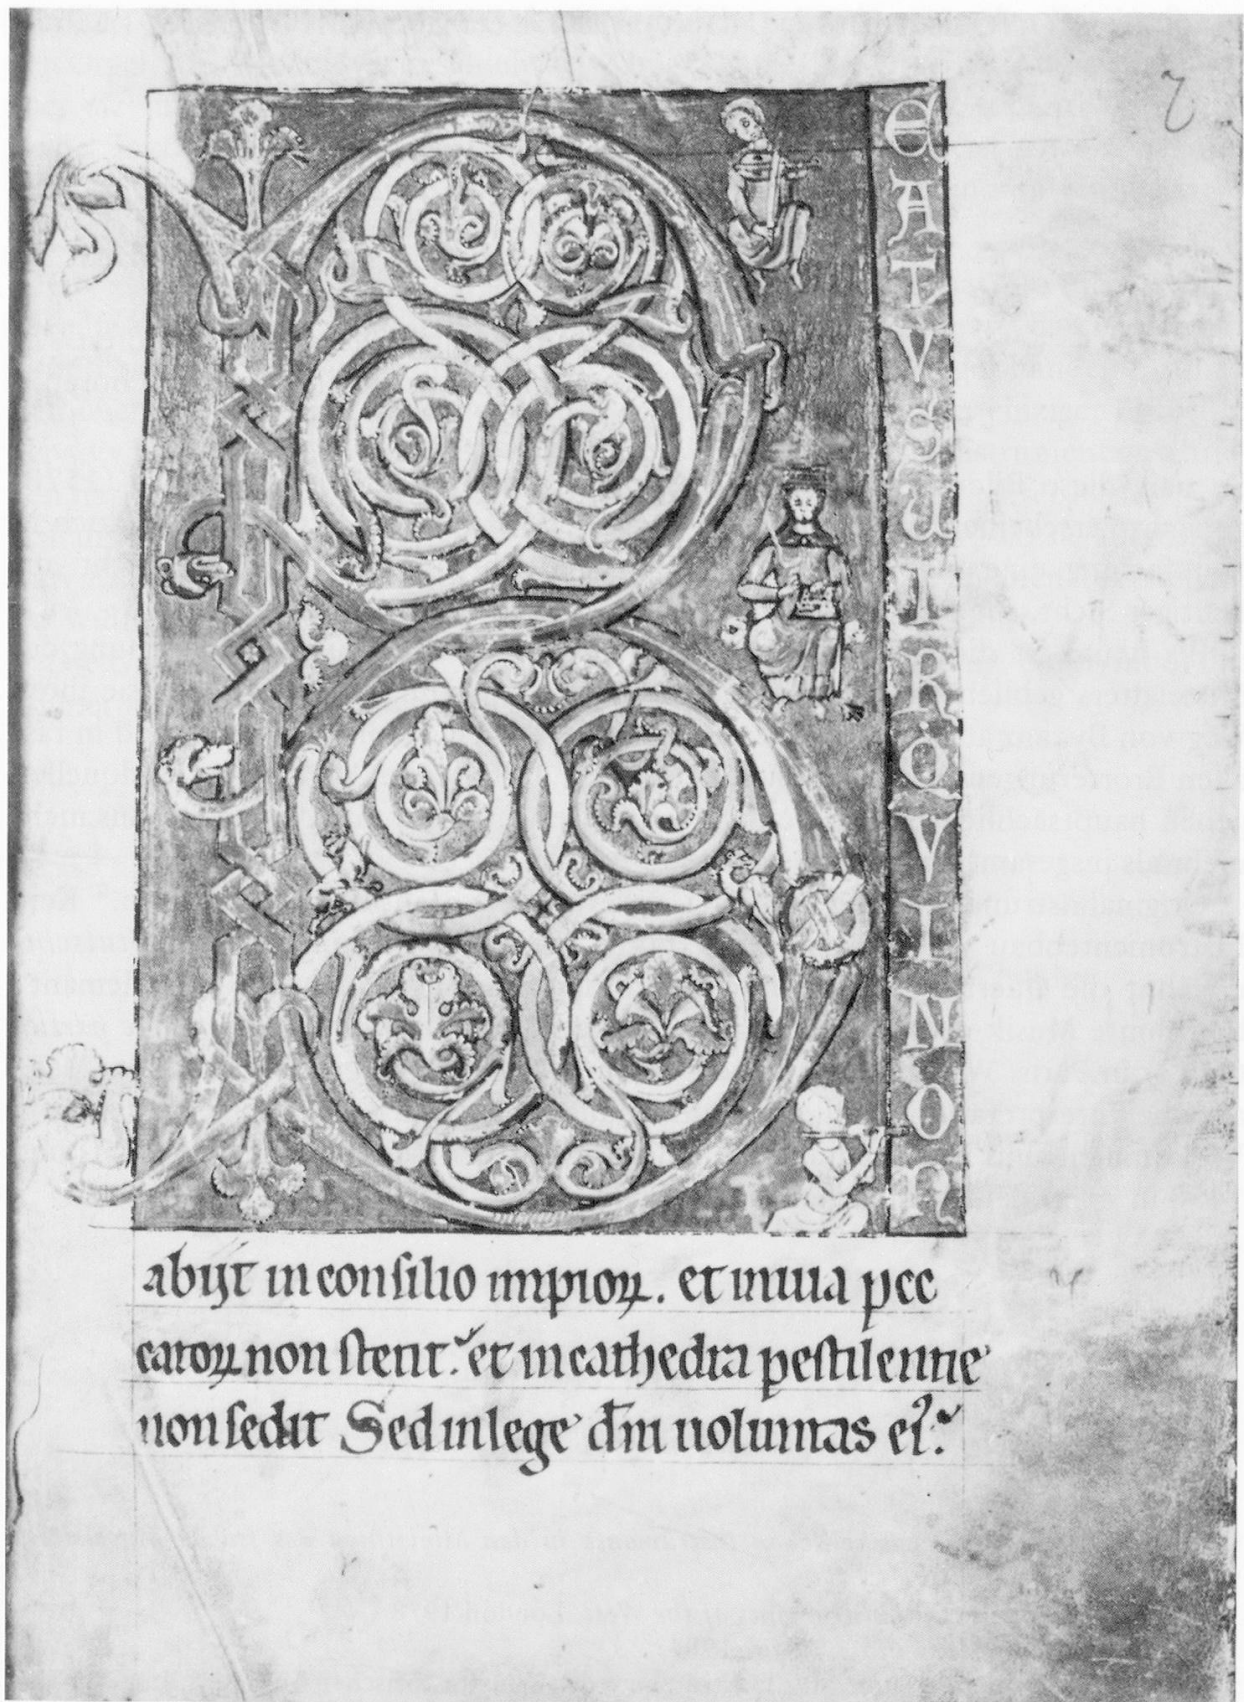 B
EATVS UIR QVI NON
abijt in consilio impioꝝ. et in uia pec
catoꝝ non stetit. et in cathedra pestilentie
non sedit Sed in lege dn̄i uoluntas eiꝰ.